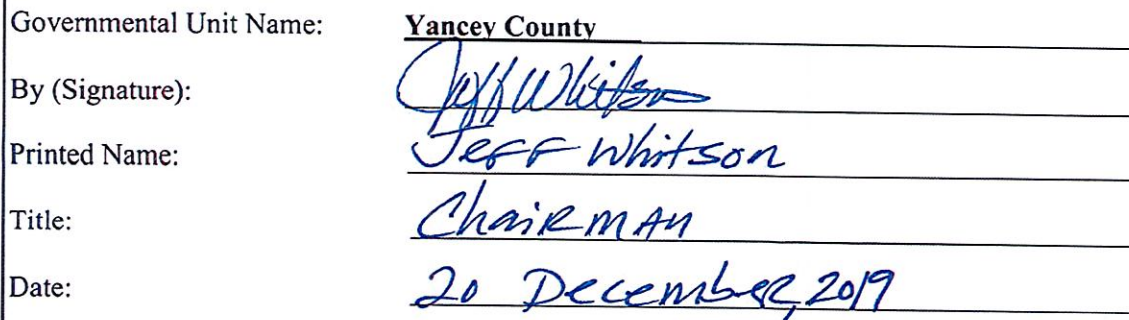 Governmental Unit Name: Yancey County
By (Signature): Jeff Whitson
Printed Name: Jeff Whitson
Title: Chairman
Date: 20 December, 2019